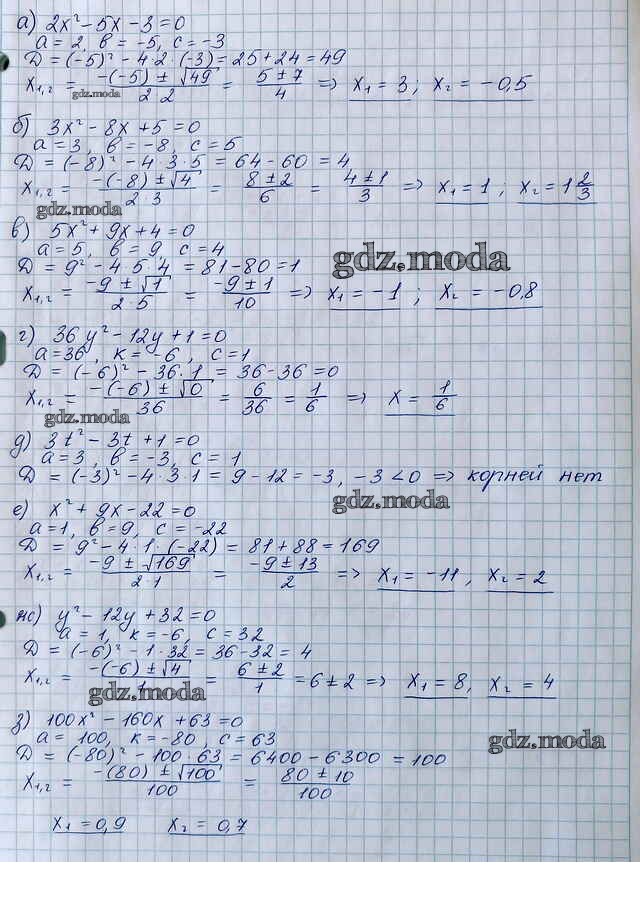 а) 2x² – 5x – 3 = 0
a = 2, в = –5, c = –3
D = (–5)² – 4·2·(–3) = 25 + 24 = 49
x₁,₂ = (–(–5) ± √49)/(2·2) = (5 ± 7)/4 => x₁ = 3; x₂ = –0,5
gdz.moda
б) 3x² – 8x + 5 = 0
a = 3, в = –8, c = 5
D = (–8)² – 4·3·5 = 64 – 60 = 4
x₁,₂ = (–(–8) ± √4)/(2·3) = (8 ± 2)/6 = (4 ± 1)/3 => x₁ = 1; x₂ = 1 2/3
gdz.moda
в) 5x² + 9x + 4 = 0
a = 5, в = 9, c = 4
D = 9² – 4·5·4 = 81 – 80 = 1
gdz.moda
x₁,₂ = (–9 ± √1)/(2·5) = (–9 ± 1)/10 => x₁ = –1; x₂ = –0,8
г) 36y² – 12y + 1 = 0
a = 36, к = –6, c = 1
D = (–6)² – 36·1 = 36 – 36 = 0
x₁,₂ = (–(–6) ± √0)/36 = 6/36 = 1/6 => x = 1/6
gdz.moda
д) 3t² – 3t + 1 = 0
a = 3, в = –3, c = 1
D = (–3)² – 4·3·1 = 9 – 12 = –3, –3 < 0 => корней нет
gdz.moda
е) x² + 9x – 22 = 0
a = 1, в = 9, c = –22
D = 9² – 4·1·(–22) = 81 + 88 = 169
x₁,₂ = (–9 ± √169)/(2·1) = (–9 ± 13)/2 => x₁ = –11, x₂ = 2
ж) y² – 12y + 32 = 0
a = 1, к = –6, c = 32
D = (–6)² – 1·32 = 36 – 32 = 4
x₁,₂ = (–(–6) ± √4)/1 = (6 ± 2)/1 = 6 ± 2 => x₁ = 8, x₂ = 4
gdz.moda
з) 100x² – 160x + 63 = 0
a = 100, к = –80, c = 63
gdz.moda
D = (–80)² – 100·63 = 6400 – 6300 = 100
x₁,₂ = (–(80) ± √100)/100 = (80 ± 10)/100
x₁ = 0,9 x₂ = 0,7